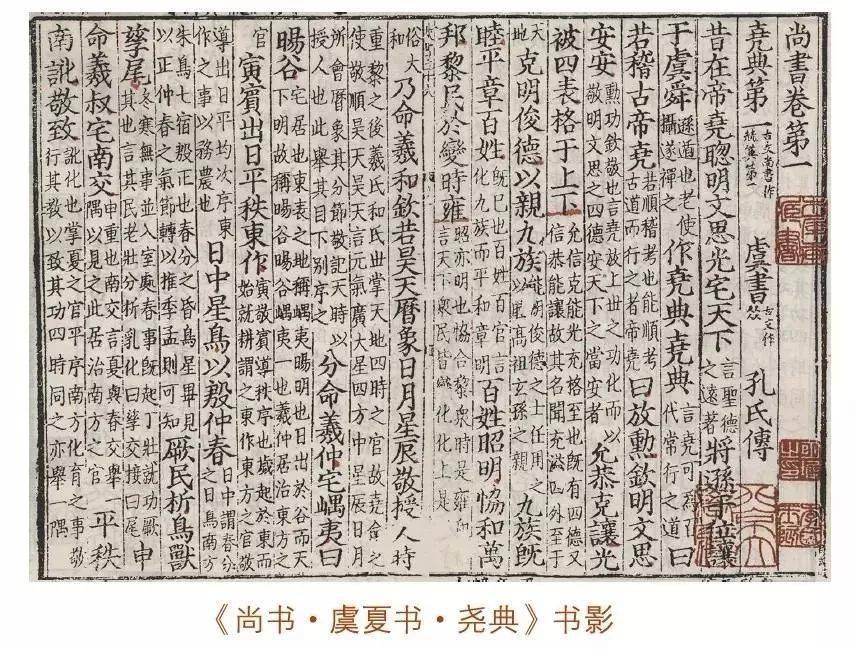 尚書卷第一
堯典第一 古文尚書作 篆第一 虞書 古文作 孔氏傳
昔在帝堯聰明文思光宅天下 言聖德之遠著 將遜于位讓
于虞舜 遜遁也老使攝遂禪之 作堯典堯典 言堯可爲百代常行之道 曰
若稽古帝堯 若順稽考也能順考古道而行之者帝堯 曰放勳欽明文思
安安 勲功欽敬也言堯放上世之功化而以敬明文思之四德安天下之當安者 允恭克讓光
被四表格于上下 允信克能光充格至也既有四德又信恭能讓故其名聞充溢四外至于
天地 克明俊德以親九族 能明俊德之士任用之以睦高祖玄孫之親 九族既
睦平章百姓 既已也百姓百官言化九族而平和章明 百姓昭明協和萬
邦黎民於變時雍 昭亦明也協合黎衆時是雍和也言天下衆民皆變化化上是以風
俗大和 乃命羲和欽若昊天曆象日月星辰敬授人時
重黎之後羲氏和氏世掌天地四時之官故堯命之使敬順昊天昊天言元氣廣大星四方中星辰日月
所會曆象其分節敬記天時以授人也此舉其目下別序之 分命羲仲宅嵎夷曰
暘谷 宅居也東表之地稱嵎夷暘明也日出於谷而天下明故稱暘谷暘谷嵎夷一也羲仲居治東方之
官 寅賓出日平秩東作 寅敬賓導秩序也歲起於東而始就耕謂之東作東方之官敬
導出日平均次序東作之事以務農也 日中星鳥以殷仲春 日中謂春分之日鳥南方
朱鳥七宿殷正也春分之昏鳥星畢見以正仲春之氣節轉以推季孟則可知 厥民析鳥獸
孳尾 冬寒無事並入室處春事既起丁壯就功厥其也言其民老壯分析乳化曰孳交接曰尾 申
命羲叔宅南交 申重也南交言夏與春交舉一隅以見之此居治南方之官 平秩
南訛敬致 訛化也掌夏之官平序南方化育之事敬行其教以致其功四時同之亦舉一隅
《尚书·虞夏书·尧典》书影